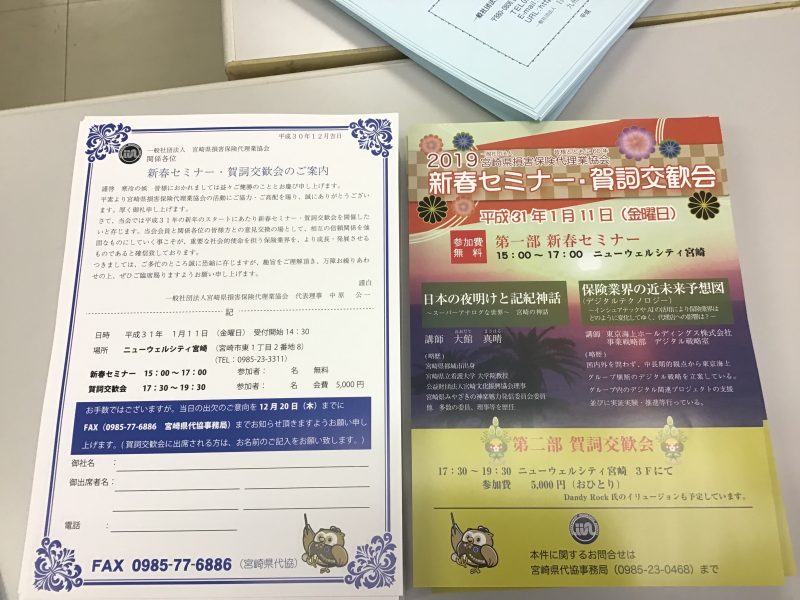 一般社団法人
〒880-0806
TEL09
E-mail
URL:htt
平成３０年１２月吉日
一般社団法人 宮崎県損害保険代理業協会
関係各位
新春セミナー・賀詞交歓会のご案内
謹啓 寒冷の候 皆様におかれましては益々ご健勝のこととお慶び申し上げます。
平素より宮崎県損害保険代理業協会の活動にご協力・ご高配を賜り、誠にありがとうござい
ます。厚く御礼申し上げます。
さて、当会では平成３１年の新年のスタートにあたり新春セミナー・賀詞交歓会を開催した
いと存じます。当会会員と関係各位の皆様方との意見交換の場として、相互の信頼関係を強
固なものにしていく事こそが、重要な社会的使命を担う保険業界を、より成長・発展させる
ものであると確信致しております。
つきましては、ご多忙のところ誠に恐縮に存じますが、趣旨をご理解頂き、万障お繰りあわ
せの上、ぜひご臨席賜りますようお願い申し上げます。
謹白
一般社団法人宮崎県損害保険代理業協会 代表理事 中原 公一
記
日時 平成３１年 １月１１日 （金曜日） 受付開始14：30
場所 ニューウェルシティ宮崎 （宮崎市東１丁目２番地８）
（TEL：0985-23-3311）
新春セミナー 15：00～17：00 参加者： 名 無料
賀詞交歓会 17：30～19：30 参加者： 名 会費 5,000円
お手数ではございますが、当日の出欠のご意向を 12月20日（木）までに
FAX（0985-77-6886 宮崎県代協事務局）までお知らせ頂きますようお願い申し
上げます。（賀詞交歓会に出席される方は、お名前のご記入をお願い致します。）
御社名 ：
御出席者名：
電話 ：
FAX 0985-77-6886 （宮崎県代協）
2019 宮崎県損害保険代理業協会
新春セミナー・賀詞交歓会
平成31年1月11日（金曜日）
参加費
無料
第一部 新春セミナー
15：00～17：00 ニューウェルシティ宮崎
日本の夜明けと記紀神話
～スーパーアナログな世界～ 宮崎の神話
講師 大館 真晴
（略歴）
宮崎県都城市出身
宮崎県立看護大学 大学院教授
公益財団法人宮崎文化振興協会理事
宮崎県みやざきの神楽魅力発信委員会委員
他 多数の委員、理事等を歴任
保険業界の近未来予想図
（デジタルテクノロジー）
～インシュアテックやAIの活用により保険業界は
どのように変化してゆく、代理店への影響は？～
講師 東京海上ホールディングス株式会社
事業戦略部 デジタル戦略室
（略歴）
国内外を問わず、中長期的観点から東京海上
グループ横断のデジタル戦略を立案している。
グループ内のデジタル関連プロジェクトの支援
並びに実証実験・推進等行っている。
第二部 賀詞交歓会
17：30～19：30 ニューウェルシティ宮崎 ３Fにて
参加費 5,000円（おひとり）
Dandy Rock 氏のイリュージョンも予定しています。
本件に関するお問合せは
宮崎県代協事務局（0985-23-0468）まで